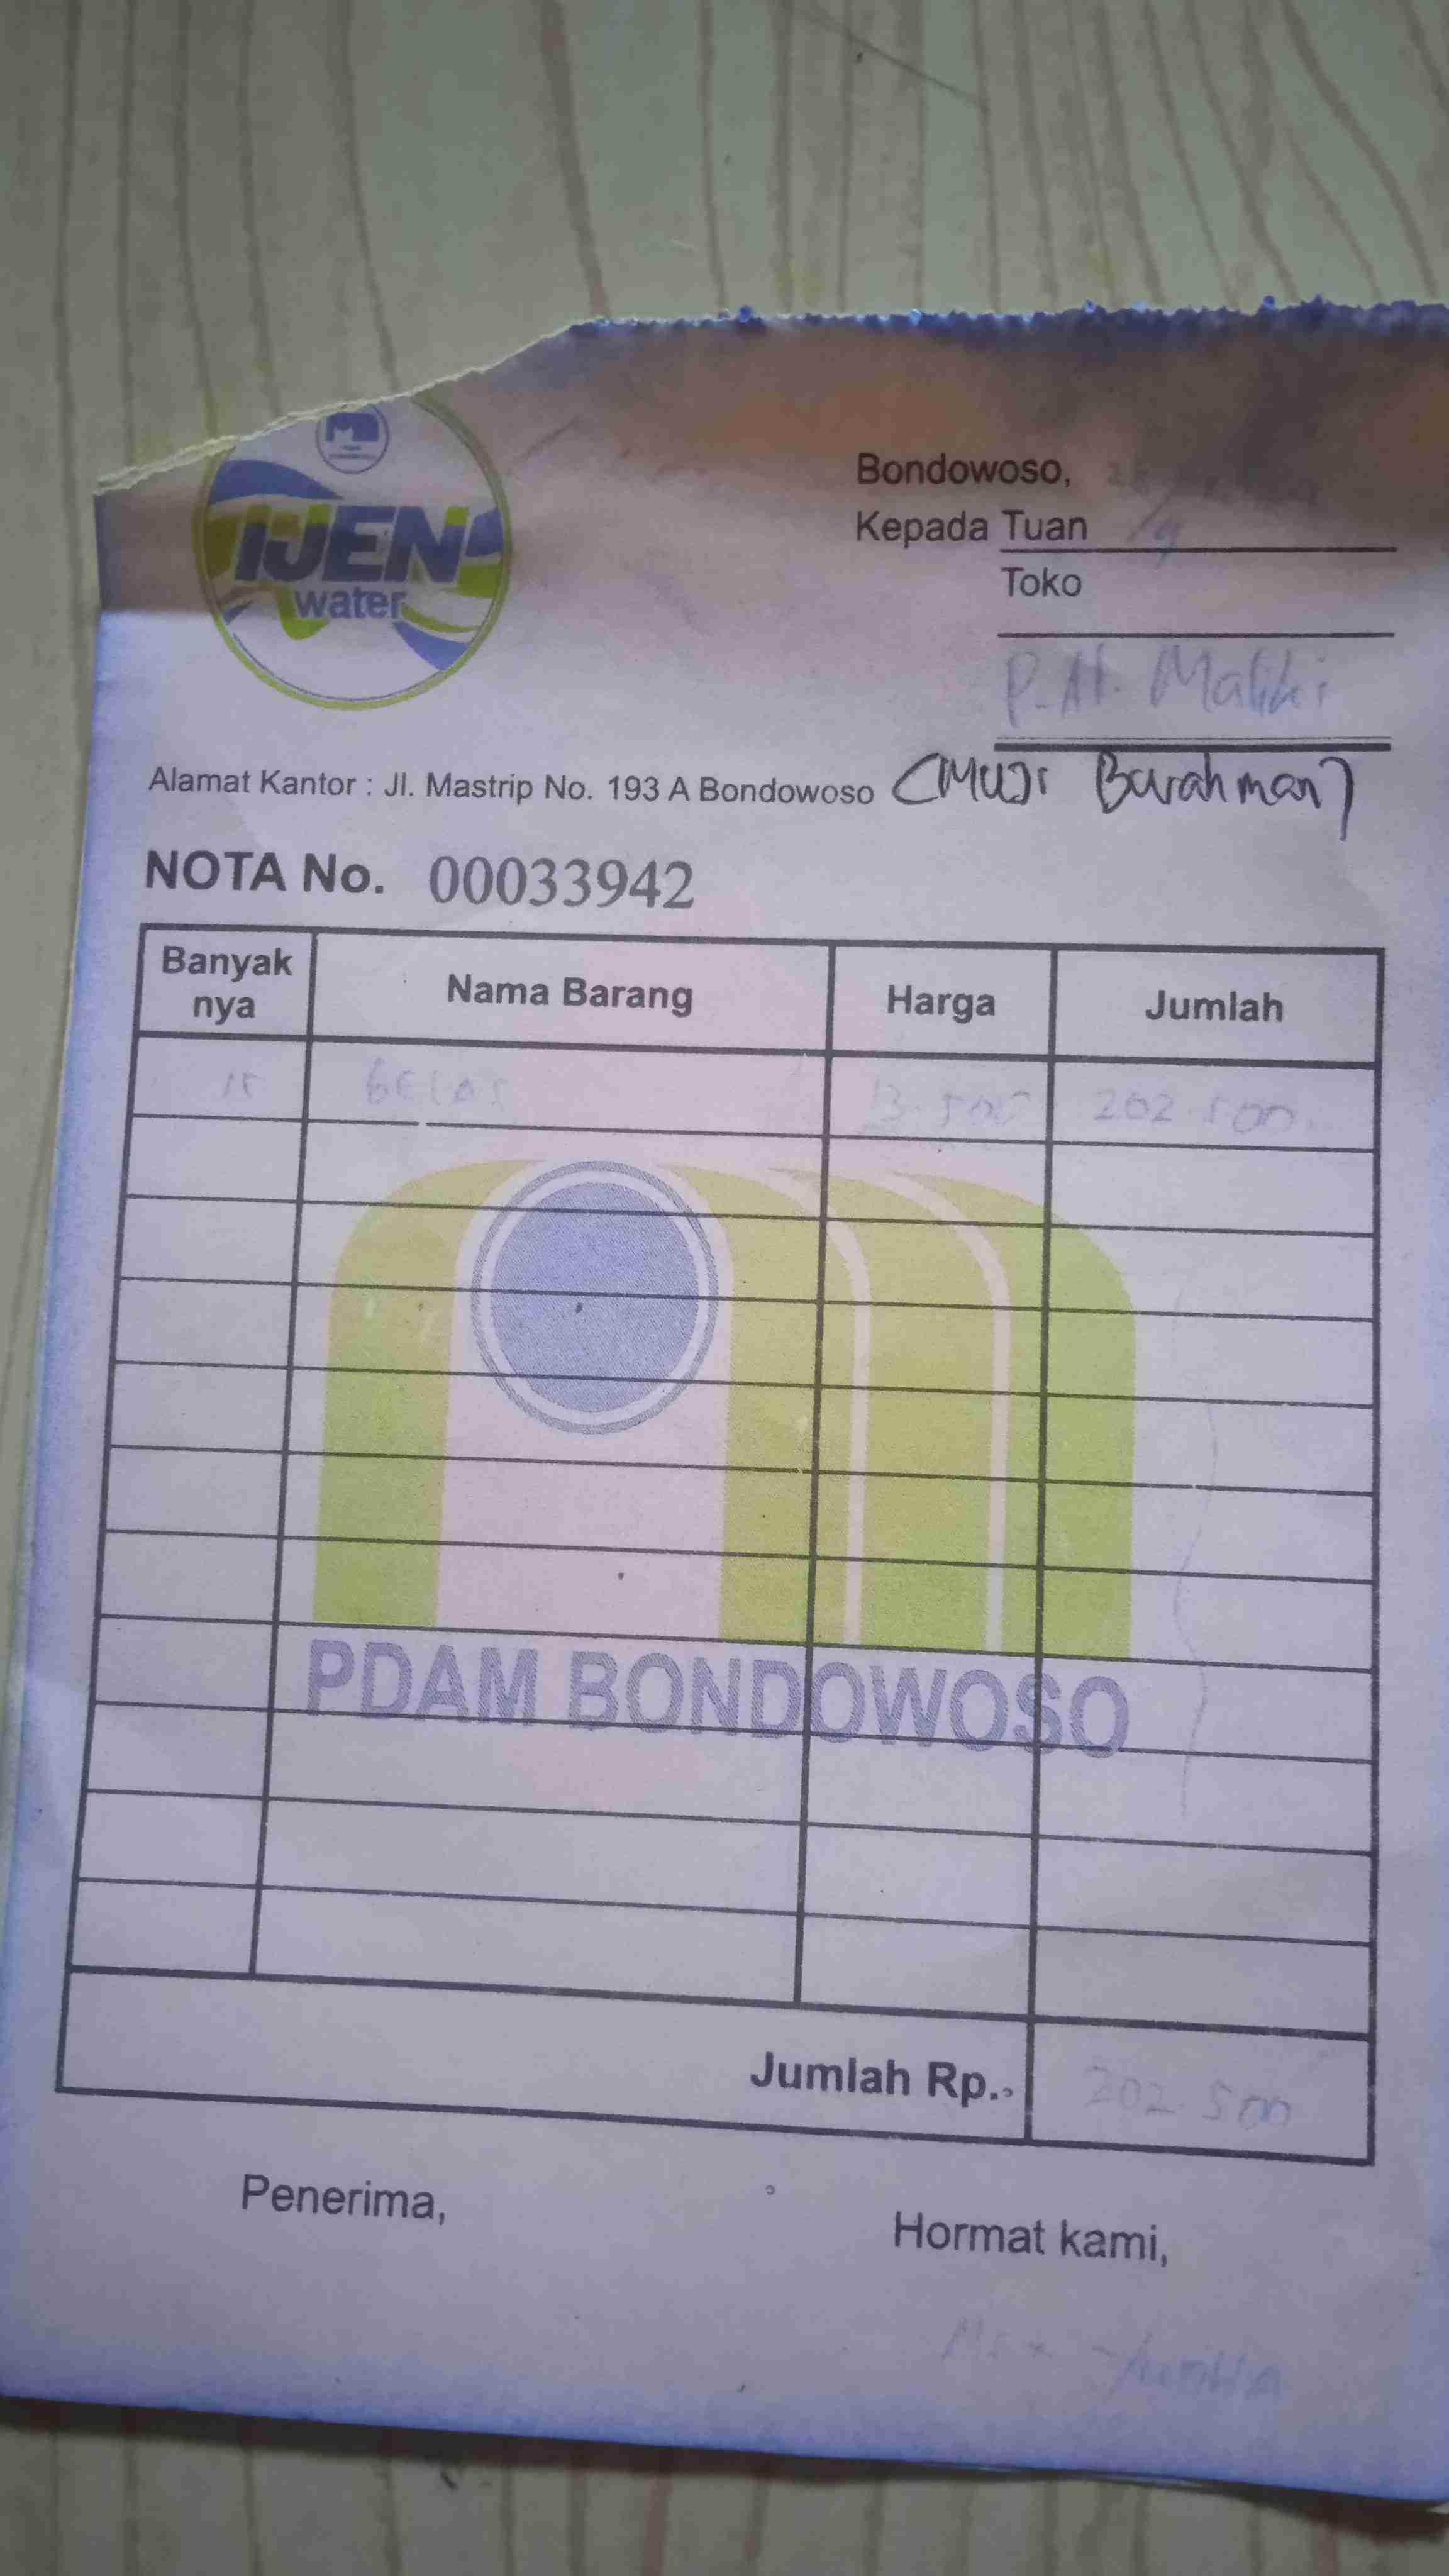 IJEN
water
Bondowoso,
Kepada Tuan
Toko
P. H. Maliki
Alamat Kantor : Jl. Mastrip No. 193 A Bondowoso (MUJI Burahman)
NOTA No. 00033942
Banyak
nya
Nama Barang
Harga
Jumlah
15 GELAS 13.500 202.500
PDAM BONDOWOSO
Jumlah Rp.
202.500
Penerima,
Hormat kami,